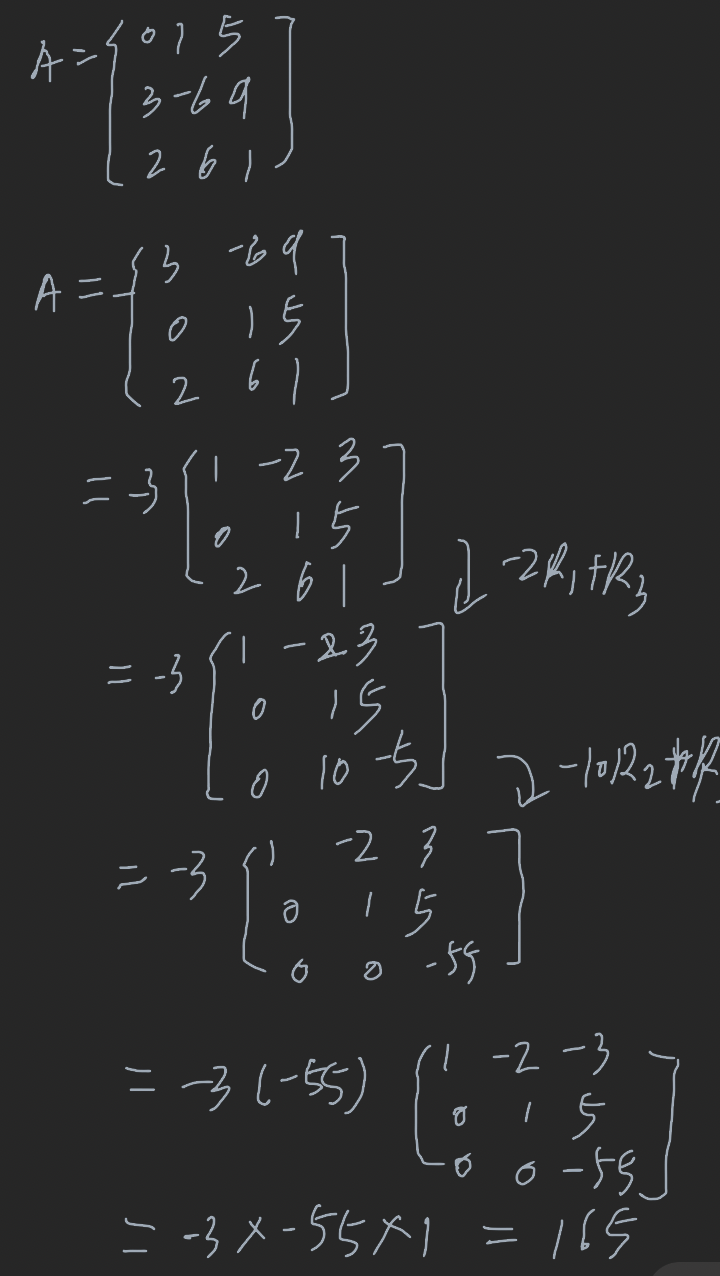 A = [ 0 1 5
3 -6 9
2 6 1 ]
A = - [ 3 -6 9
0 1 5
2 6 1 ]
= -3 [ 1 -2 3
0 1 5
2 6 1 ]
-2R₁+R₃
= -3 [ 1 -2 3
0 1 5
0 10 -5 ]
-10R₂+R
= -3 [ 1 -2 3
0 1 5
0 0 -55 ]
= -3 (-55) [ 1 -2 -3
0 1 5
0 0 -55 ]
= -3 × -55 × 1 = 165